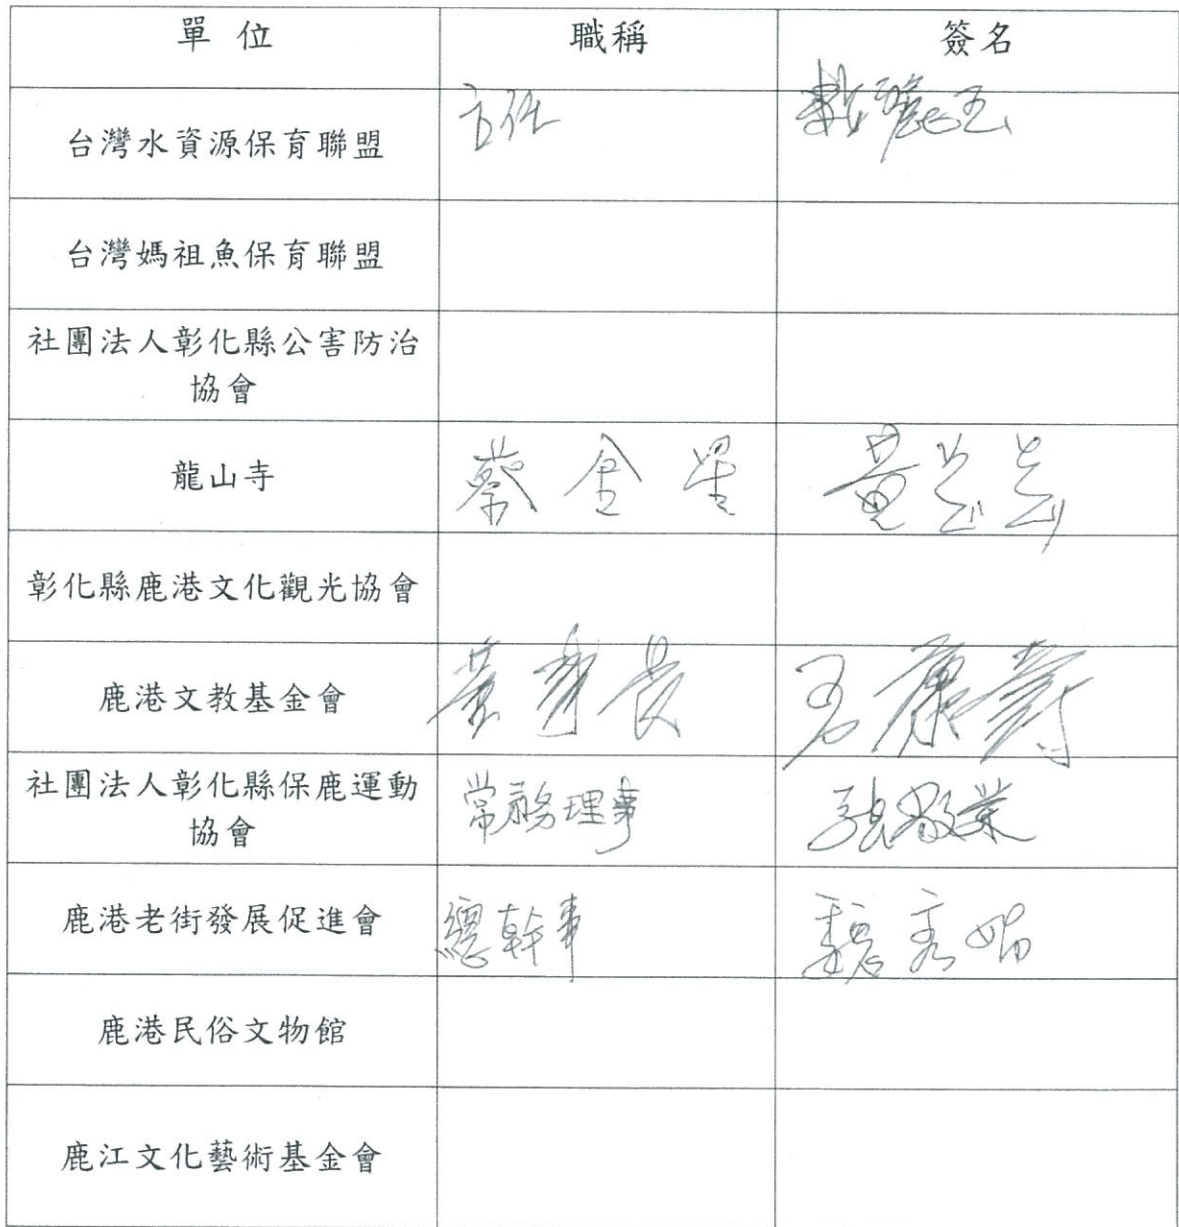 單位 職稱 簽名
台灣水資源保育聯盟 主任 粘麗玉
台灣媽祖魚保育聯盟
社團法人彰化縣公害防治
協會
龍山寺 蔡金星 黃志
彰化縣鹿港文化觀光協會
鹿港文教基金會 董事長 王康壽
社團法人彰化縣保鹿運動
協會 常務理事 張敬業
鹿港老街發展促進會 總幹事 魏秀娟
鹿港民俗文物館
鹿江文化藝術基金會